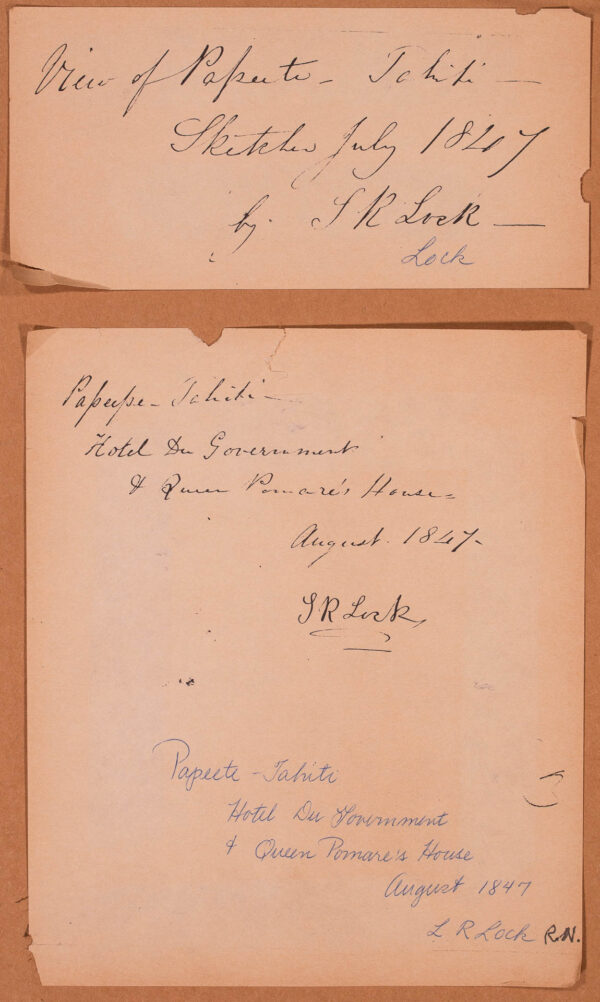 View of Papeete - Tahiti -
Sketches July 1847
by. S R Lock -
Lock
Papeete - Tahiti -
Hotel Du Government
& Queen Pomare's House -
August. 1847 -
S R Lock,
Papeete - Tahiti
Hotel Du Government
& Queen Pomare's House
August 1847
L R Lock R.N.